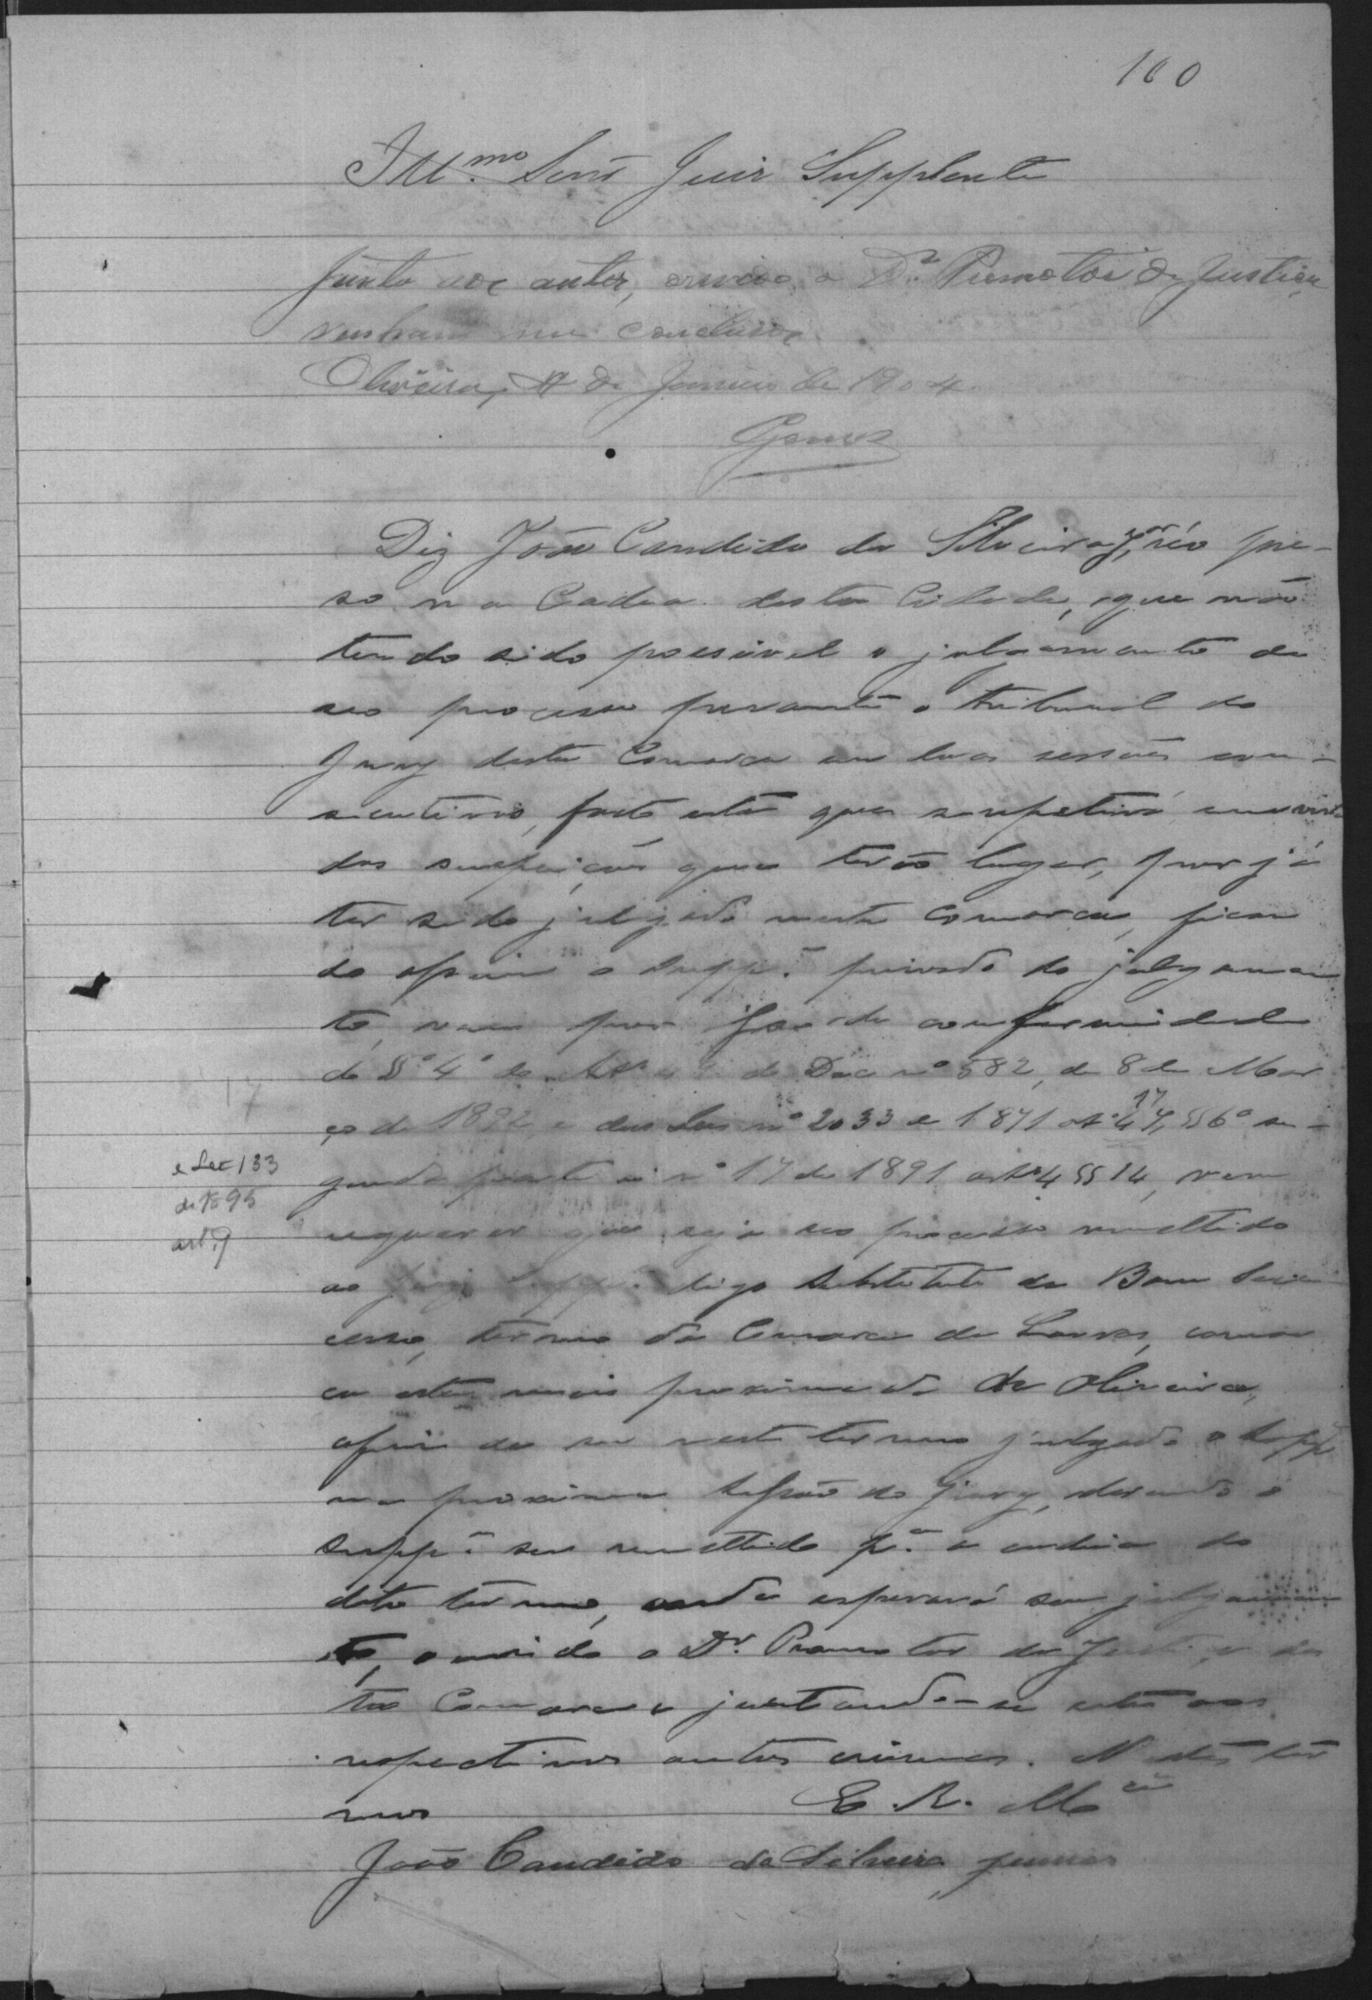 100
Illmo Senr Juiz Supplente
Junto aos autos, ouvido o Dr Promotor de Justiça
venham me conclusos.
Oliveira, de Janeiro de 1904.
Gomes
Diz João Candido da Silveira Jor, réo pre-
so na Cadea desta Cidade, que não
tendo sido possivel o julgamento de
seo processo perante o tribunal do
Jury desta Comarca em duas sessões con-
secutivas, facto este que se repetirá em vista
das suspeições que terão lugar, por já
ter sido julgado nesta comarca, fican
do assim o suppe privado do julgamen
to, vem por isso de conformidade
do § 4º do Art do Dec nº 582, de 8 de Mar
ço de 1892, e das Leis nº 2033 de 1871 art 17, § 6º se-
gunda parte e nº 17 de 1891 art 4 § 14, vem
e Lei 133
de 1895
art. 9
requerer que seja seo processo remettido
ao Juiz Suppe digo Substituto de Bom Suc
cesso, termo da Comarca de Lavras, comar
ca esta mais proxima da de Oliveira,
afim de ser neste termo julgado o Supp
na proxima sessão do jury, devendo o
suppe ser remettido pa a cadeia do
dito termo, onde esperará seu julgamen
to, ouvido o Dr. Promotor da Justiça des
ta Comarca e juntando-se esta aos
respectivos autos crimes. Nestes ter
mos
E. R. Mce
João Candido da Silveira Junior